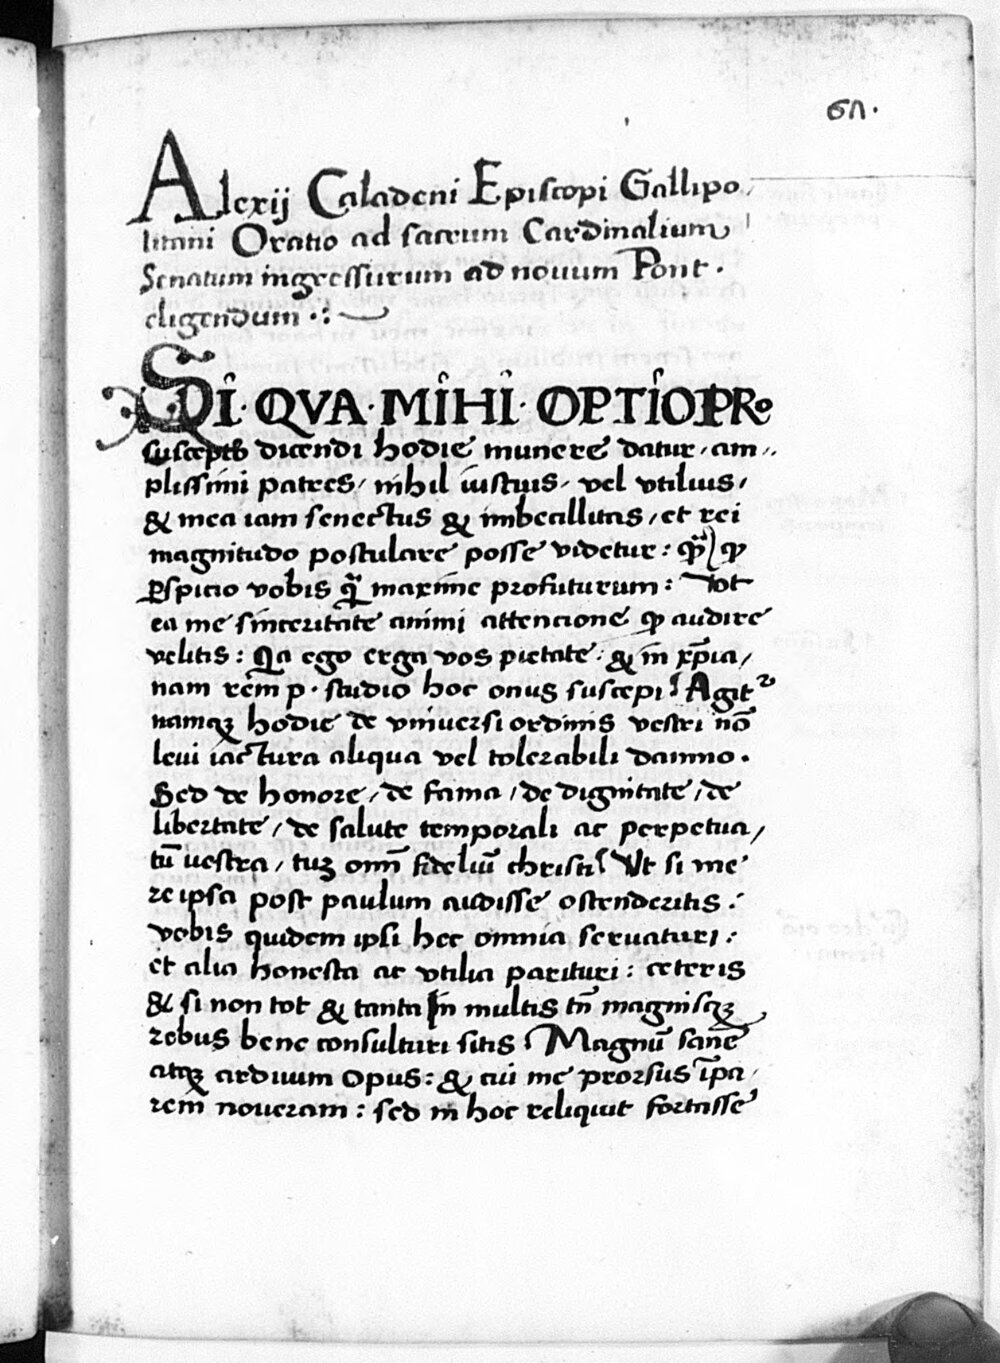 67.
Alexij Caladeni Episcopi Gallipo,
litani Oratio ad sacrum Cardinalium
Senatum ingressurum ad nouum Pont.
eligendum .:
SI · QVA · MIHI · OPTIO PRo
suscepto dicendi hodie munere datur, am,,
plissimi patres, nihil iustius, vel vtilius,
& mea iam senectus & imbecillitas, et rei
magnitudo postulare posse videtur: qᷓꝫ ꝙ
ꝑspicio vobis qᷓꝫ maxime profuturum: Vot
ea me sinceritate animi attencione ꝙ audire
velitis: Qua ego erga vos pietate: & in xp̄ia,
nam rem p. studio hoc onus suscepi: Agitᷣ
namqꝫ hodie de vniuersi ordinis vestri nō
leui iactura aliqua vel tolerabili damno.
Sed de honore, de fama, de dignitate, de
libertate, de salute temporali ac perpetua,
tū uestra, tuꝫ omī fideliū christi: Vt si me
re ipsa post paulum audisse ostenderitis.:
vobis quidem ipsi hec omnia seruaturi:
et alia honesta ac vtilia parituri: ceteris
& si non tot & tanta In multis tn̄ magnisqꝫ
rebus bene consulturi sitis: Magnū sane
atqꝫ arduum opus: & cui me prorsus īpa,
rem noueram: sed in hoc reliquit fortasse